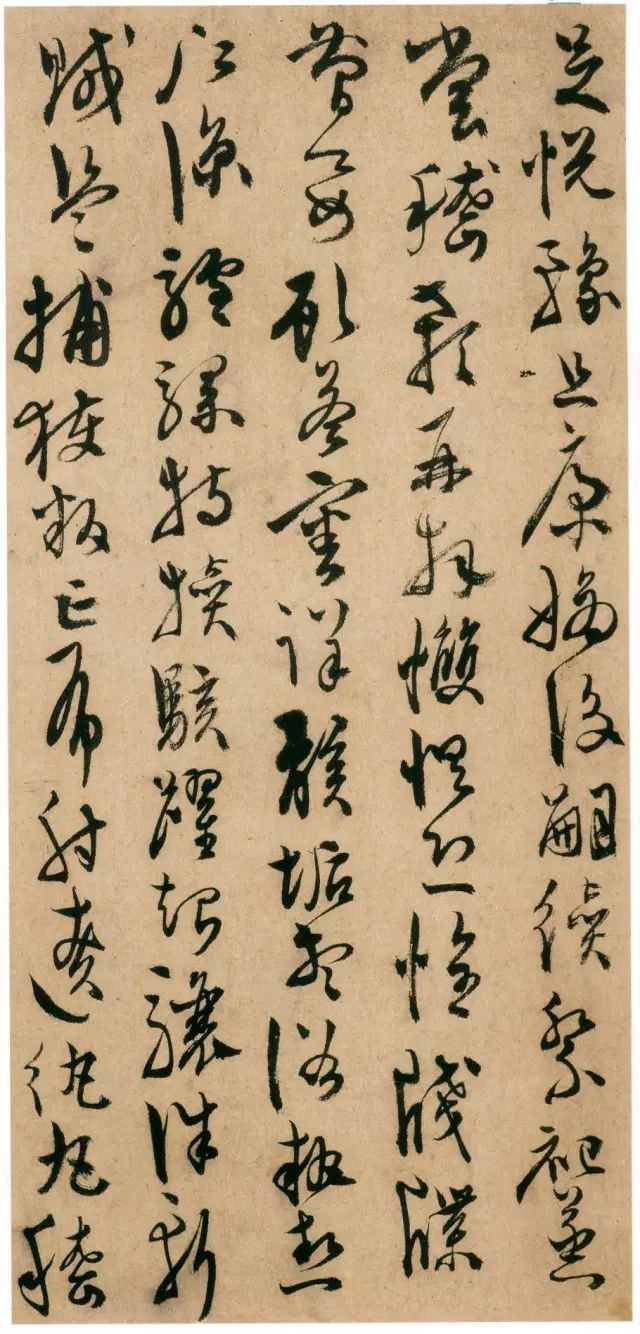 足悅豫且康嫡後嗣續祭祀蒸
嘗稽顙再拜愯惧恐惶牋牒
簡要顧答審詳骸垢想浴執熱
願涼驢騾特犢駭躍超驤誅斬
賊盜捕獲叛亡布射遼紈丸嵇